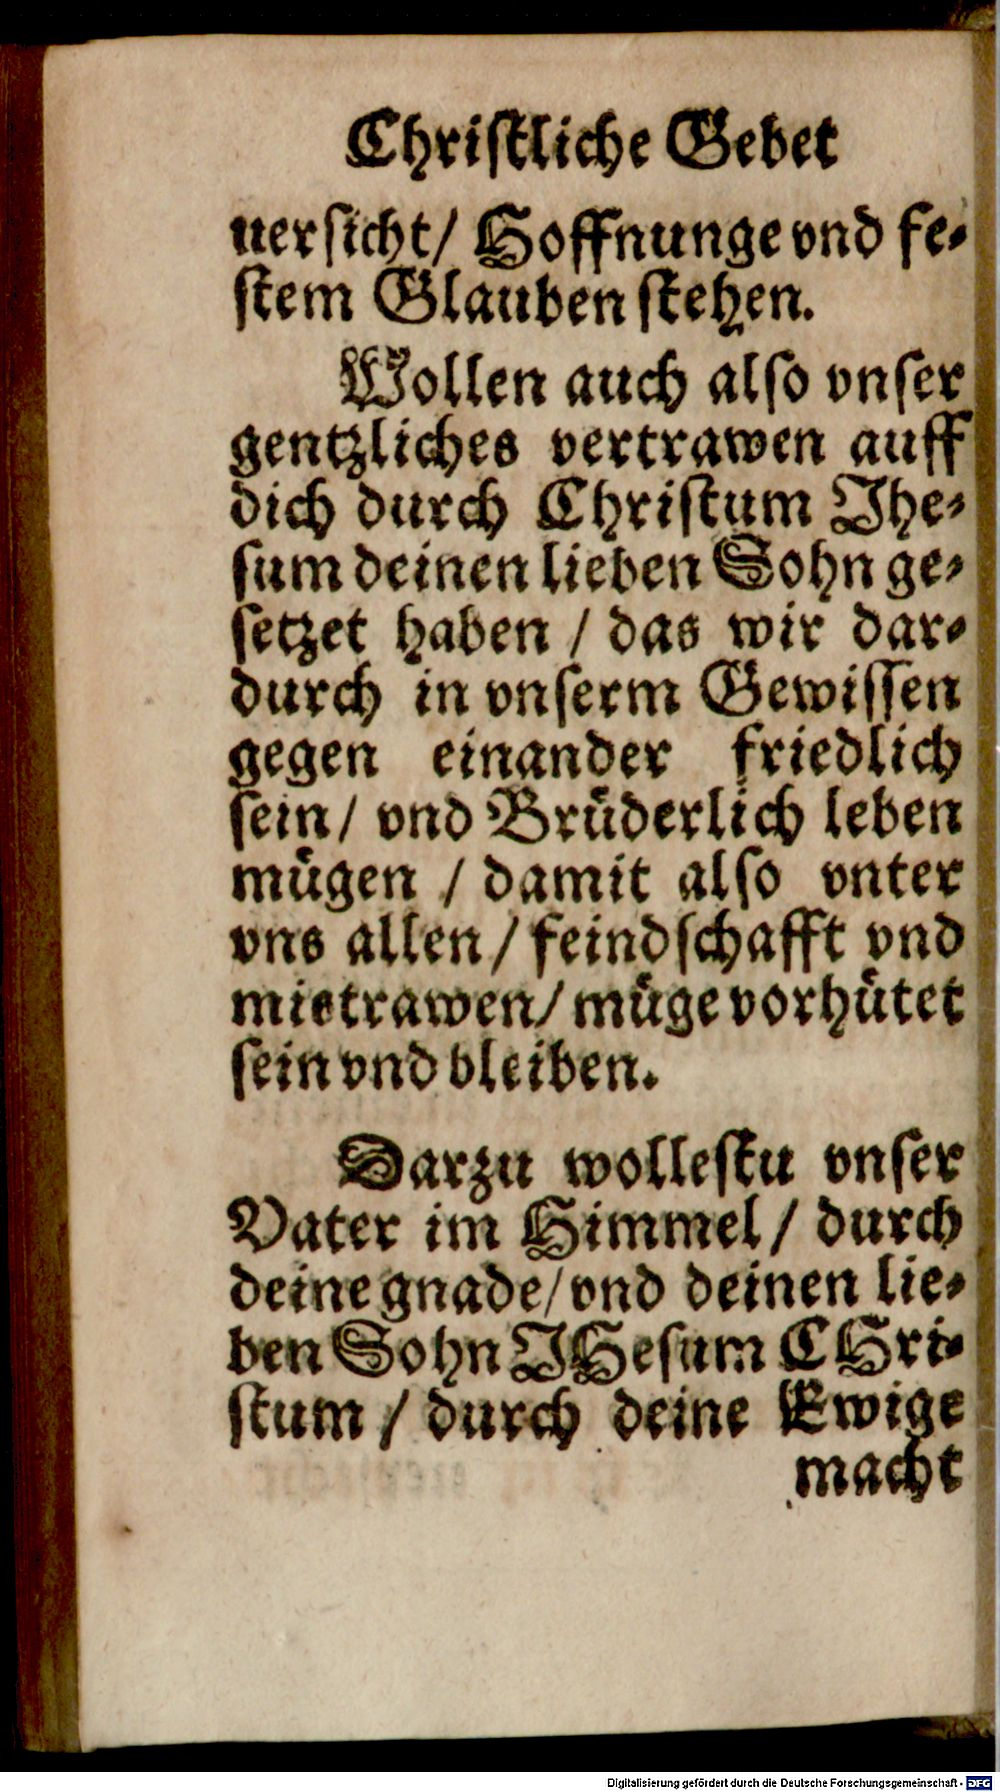 Christliche Gebet
uersicht/ Hoffnunge vnd fe-
stem Glauben stehen.
Wollen auch also vnser
gentzliches vertrawen auff
dich durch Christum Jhe-
sum deinen lieben Sohn ge-
setzet haben / das wir dar-
durch in vnserm Gewissen
gegen einander friedlich
sein/ vnd Brüderlich leben
mügen / damit also vnter
vns allen/ feindschafft vnd
mistrawen/ müge vorhütet
sein vnd bleiben.
Darzu wollestu vnser
Vater im Himmel/ durch
deine gnade/ vnd deinen lie-
ben Sohn JHesum CHri-
stum / durch deine Ewige
macht
Digitalisierung gefördert durch die Deutsche Forschungsgemeinschaft - DFG